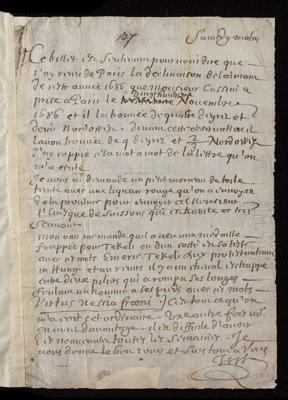 157
Samedy matin
Ce billet est seulement pour vous dire que
j'ay receu de Paris la declinaison de l'aiman
de cette année 1686 que monsieur Cassini a
prise a Paris le Novembre
1686 et il la trouvée de quatre degrez et
demi Nordoüest. devant cette observation il
l'auoit trouvée de 4 degrez et Nordoüest
J'ay coppié cela mot a mot de la lettre qu'on
m'a écrite.
Je vous ay demandé un petit morceau de toile
teinte avec une liqueur rouge qu'on a envoyée
de la province pour envoyer a Monsieur
L'Euesque de Soissons qui est habile et tres
Scauant.
mon ami me mande qu'il a veu une medaille
frappée pour Tekeli ou d'un costé est sa teste
avec ces mots Emeric Tekeli Dux protestantium
in Hungaria et au revers il y a un cheval échappé
entre deux piliers qui a rompu ses longes
foulant un homme a ses pieds avec ces mots
Virtus nescia fraeni. J'ay tout ce qu'on
m'a écrit cet ordinaire. Une autre fois on
en écrira davantage. il est difficile d'avoir
des nouveautez toutes les semaines. Je
vous donne le bon jour et suis tout a vous